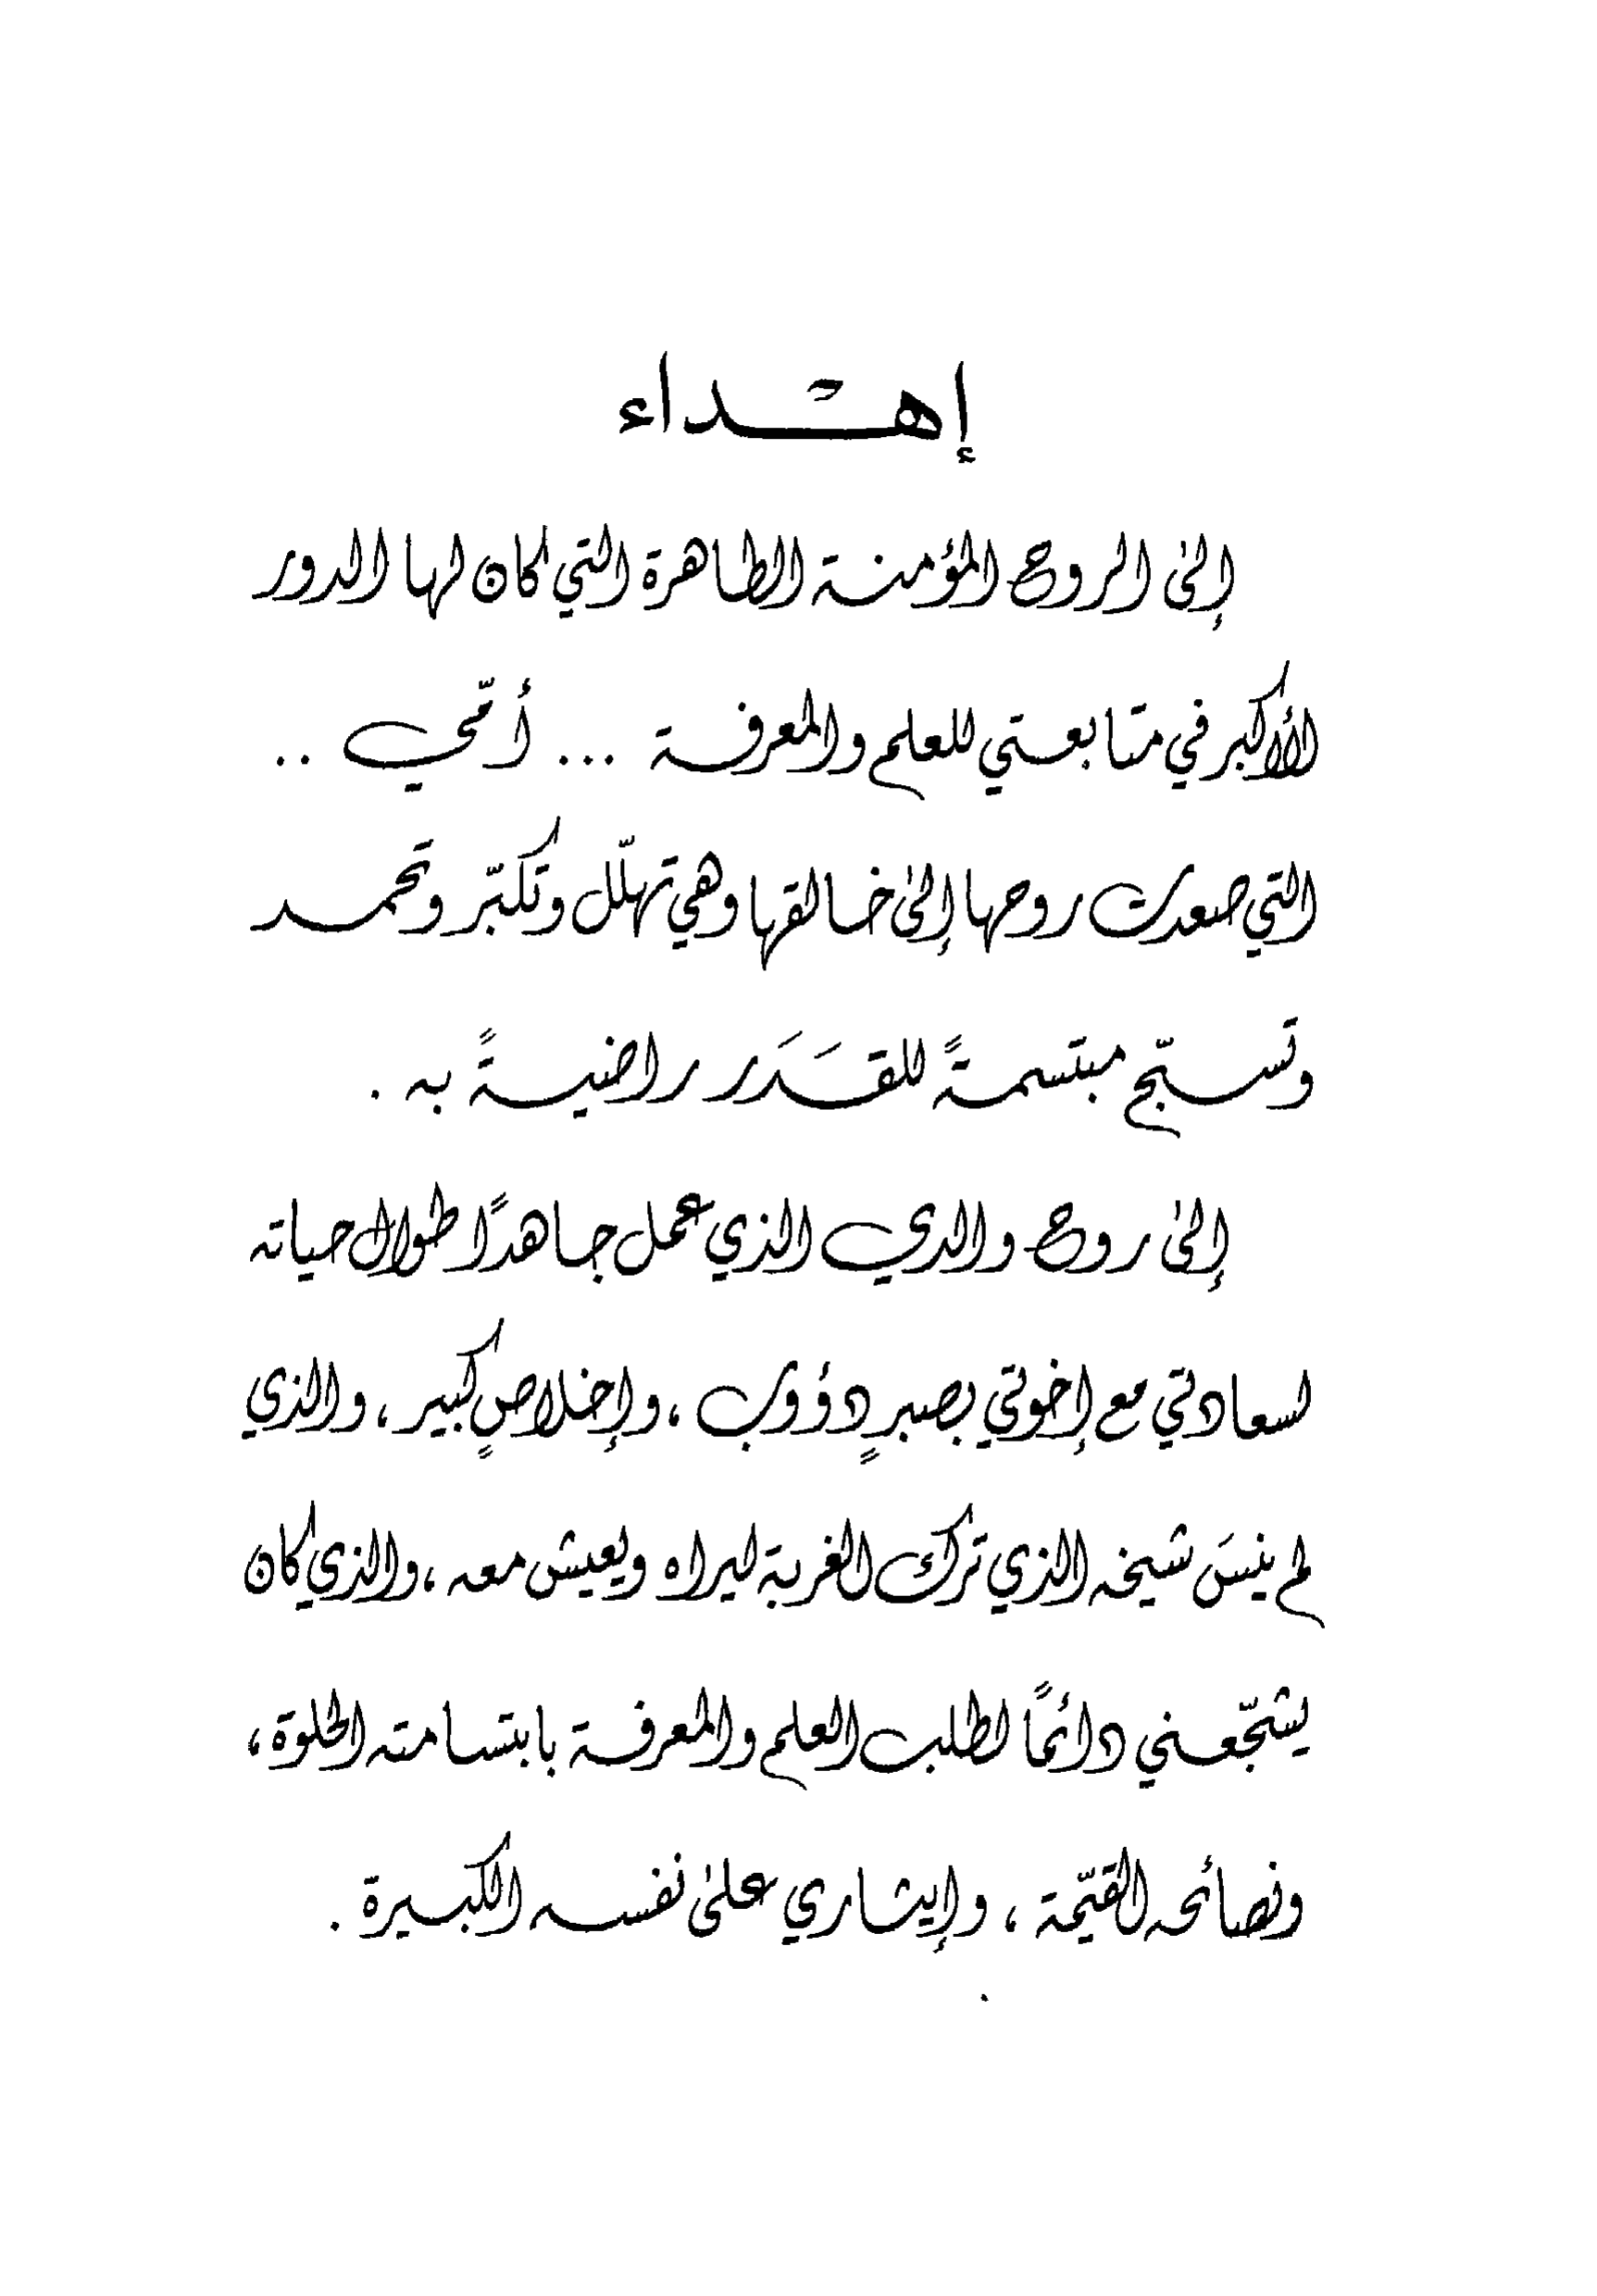 إهداء
إلىٰ الروح المؤمنة الطاهرة التي كان لها الدور
الأكبر في متابعتي للعلم والمعرفة ... أمّي ..
التي صعدت روحها إلىٰ خالقها وهي تهلّل وتكبّر وتحمد
وتسبّح مبتسمةً للقَدَر راضيةً به .
إلىٰ روح والدي الذي عمل جاهدًا طوال حياته
لسعادتي مع إخوتي بصبرٍ دؤوب ، وإخلاصٍ كبير ، والذي
لم ينسَ شيخه الذي ترك الغربة ليراه ويعيش معه ، والذي كان
يشجّعني دائمًا لطلب العلم والمعرفة بابتسامته الحلوة ،
ونصائحه القيّمة ، وإيثاري علىٰ نفسه الكبيرة .